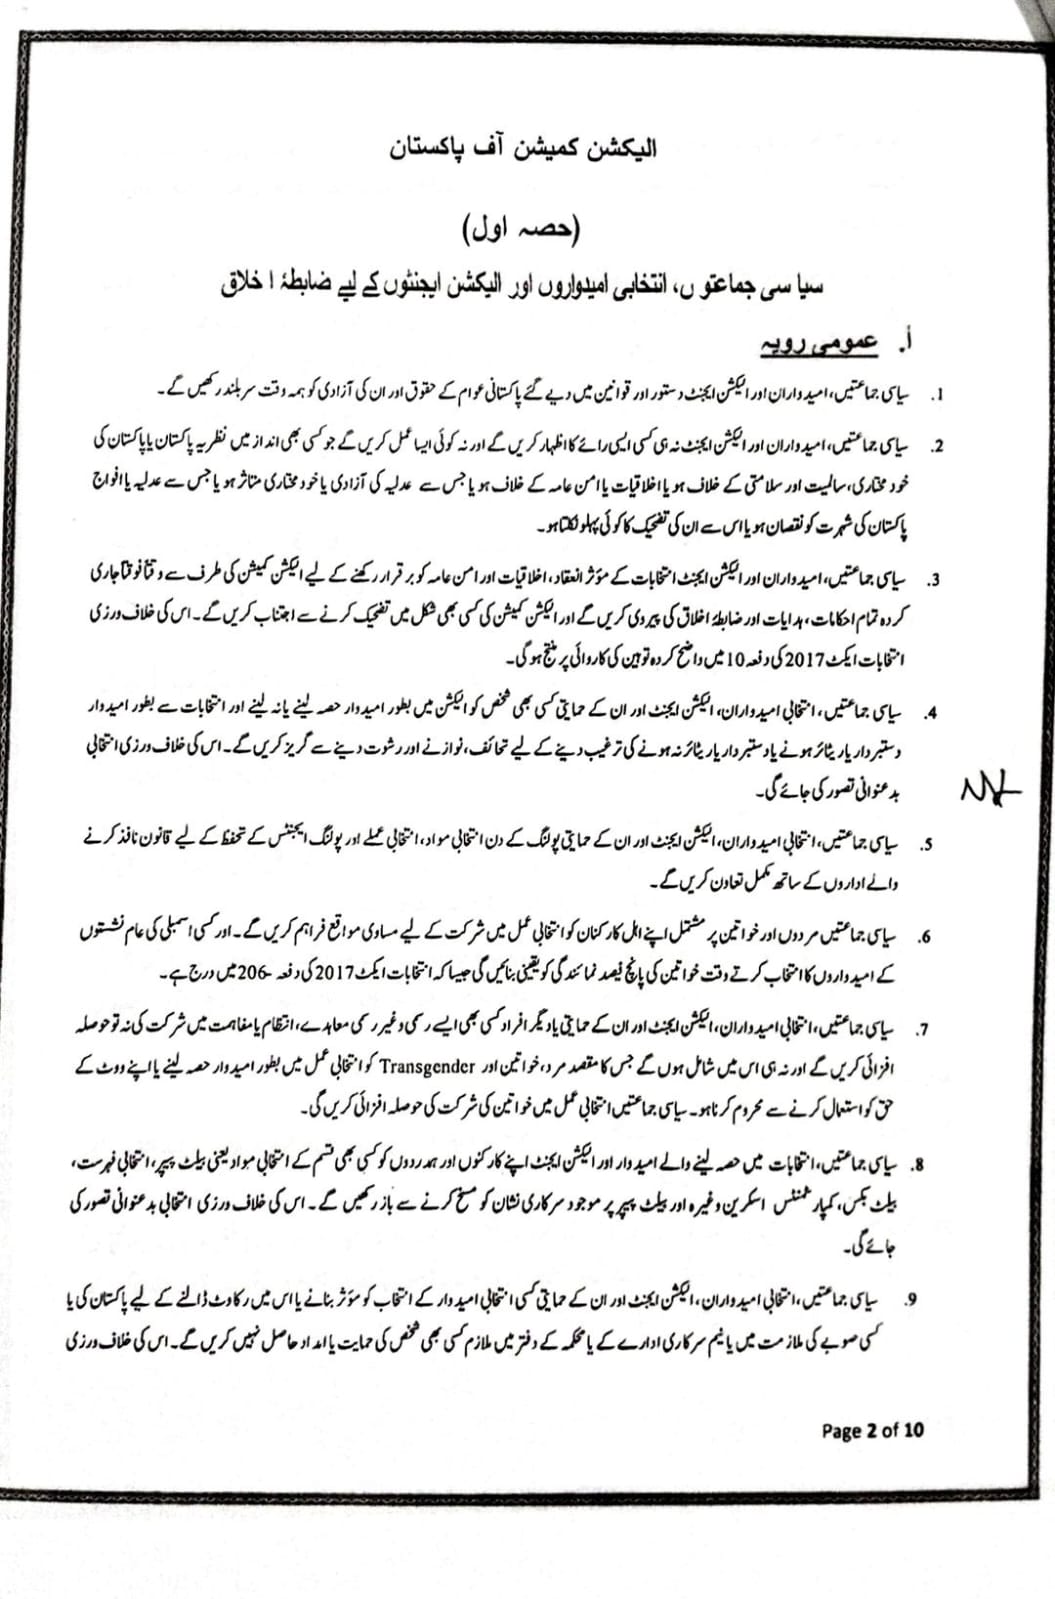 الیکشن کمیشن آف پاکستان
(حصہ اول)
سیاسی جماعتوں، انتخابی امیدواروں اور الیکشن ایجنٹوں کے لیے ضابطۂ اخلاق
أ. عمومی رویہ
1. سیاسی جماعتیں، امیدواران اور الیکشن ایجنٹ دستور اور قوانین میں دیے گئے پاکستانی عوام کے حقوق اور ان کی آزادی کو ہمہ وقت سربلند رکھیں گے۔
2. سیاسی جماعتیں، امیدواران اور الیکشن ایجنٹ نہ ہی کسی ایسی رائے کا اظہار کریں گے اور نہ کوئی ایسا عمل کریں گے جو کسی بھی انداز میں نظریہ پاکستان یا پاکستان کی
خود مختاری، سالمیت اور سلامتی کے خلاف ہو یا اخلاقیات یا امن عامہ کے خلاف ہو یا جس سے عدلیہ کی آزادی یا خود مختاری متاثر ہو یا جس سے عدلیہ یا افواج
پاکستان کی شہرت کو نقصان ہو یا اس سے ان کی تضحیک کا کوئی پہلو نکلتا ہو۔
3. سیاسی جماعتیں، امیدواران اور الیکشن ایجنٹ انتخابات کے مؤثر انعقاد، اخلاقیات اور امن عامہ کو برقرار رکھنے کے لیے الیکشن کمیشن کی طرف سے وقتاً فوقتاً جاری
کردہ تمام احکامات، ہدایات اور ضابطۂ اخلاق کی پیروی کریں گے اور الیکشن کمیشن کی کسی بھی شکل میں تضحیک کرنے سے اجتناب کریں گے۔ اس کی خلاف ورزی
انتخابات ایکٹ 2017 کی دفعہ 10 میں واضح کردہ توہین کی کاروائی پر منتج ہوگی۔
4. سیاسی جماعتیں، انتخابی امیدواران، الیکشن ایجنٹ اور ان کے حمایتی کسی بھی شخص کو الیکشن میں بطور امیدوار حصہ لینے یا نہ لینے اور انتخابات سے بطور امیدوار
دستبردار یا ریٹائر ہونے یا دستبردار یا ریٹائر نہ ہونے کی ترغیب دینے کے لیے تحائف، نوازنے اور رشوت دینے سے گریز کریں گے۔ اس کی خلاف ورزی انتخابی
بدعنوانی تصور کی جائے گی۔
5. سیاسی جماعتیں، انتخابی امیدواران، الیکشن ایجنٹ اور ان کے حمایتی پولنگ کے دن انتخابی مواد، انتخابی عملے اور پولنگ ایجنٹس کے تحفظ کے لیے قانون نافذ کرنے
والے اداروں کے ساتھ مکمل تعاون کریں گے۔
6. سیاسی جماعتیں مردوں اور خواتین پر مشتمل اپنے اہل کارکنان کو انتخابی عمل میں شرکت کے لیے مساوی مواقع فراہم کریں گے۔ اور کسی اسمبلی کی عام نشستوں
کے امیدواروں کا انتخاب کرتے وقت خواتین کی پانچ فیصد نمائندگی کو یقینی بنائیں گی جیسا کہ انتخابات ایکٹ 2017 کی دفعہ -206 میں درج ہے۔
7. سیاسی جماعتیں، انتخابی امیدواران، الیکشن ایجنٹ اور ان کے حمایتی یا دیگر افراد کسی بھی ایسے رسمی و غیر رسمی معاہدے، انتظام یا مفاہمت میں شرکت کی نہ تو حوصلہ
افزائی کریں گے اور نہ ہی اس میں شامل ہوں گے جس کا مقصد مرد، خواتین اور Transgender کو انتخابی عمل میں بطور امیدوار حصہ لینے یا اپنے ووٹ کے
حق کو استعمال کرنے سے محروم کرنا ہو۔ سیاسی جماعتیں انتخابی عمل میں خواتین کی شرکت کی حوصلہ افزائی کریں گی۔
8. سیاسی جماعتیں، انتخابات میں حصہ لینے والے امیدوار اور الیکشن ایجنٹ اپنے کارکنوں اور ہمدردوں کو کسی بھی قسم کے انتخابی مواد یعنی بیلٹ پیپر، انتخابی فہرست،
بیلٹ بکس، کمپارٹمنٹس اسکرین وغیرہ اور بیلٹ پیپر پر موجود سرکاری نشان کو مسخ کرنے سے باز رکھیں گے۔ اس کی خلاف ورزی انتخابی بدعنوانی تصور کی
جائے گی۔
9. سیاسی جماعتیں، انتخابی امیدواران، الیکشن ایجنٹ اور ان کے حمایتی کسی انتخابی امیدوار کے انتخاب کو مؤثر بنانے یا اس میں رکاوٹ ڈالنے کے لیے پاکستان کی یا
کسی صوبے کی ملازمت میں یا نیم سرکاری ادارے کے یا محکمہ کے دفتر میں ملازم کسی بھی شخص کی حمایت یا امداد حاصل نہیں کریں گے۔ اس کی خلاف ورزی
Page 2 of 10